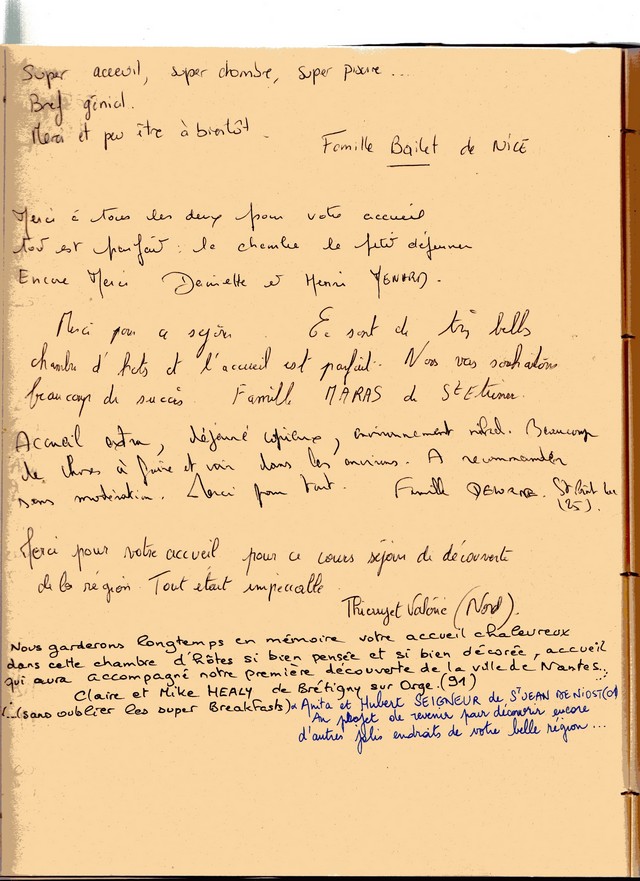 Super acceuil, super chambre, super piscine...
Bref génial.
Merci et peu être à bientôt.
Famille Bailet de NICE
Merci à tous les deux pour votre accueil
tout est parfait : la chambre le petit déjeuner
Encore Merci Danielle et Henri MENARD.
Merci pour ce séjour. Ce sont de très belles
chambre d'hôtes et l'accueil est parfait. Nous vous souhaitons
beaucoup de succès. Famille MARAS de St Etienne.
Accueil extra, déjeuné copieux, environnement nickel. Beaucoup
de choses à faire et voir dans les environs. A recommander
sans modération. Merci pour tout. Famille
(25).
Merci pour votre accueil pour ce cours séjour de découverte
de la région. Tout était impeccable
Thierry et Valérie (Nord).
Nous garderons longtemps en mémoire votre accueil chaleureux
dans cette chambre d'hôtes si bien pensée et si bien décorée, accueil
qui aura accompagné notre première découverte de la ville de Nantes...
Claire et Mike HEALY de Brétigny sur Orge.(91)
(...(sans oublier les super Breakfasts)
Anita et Hubert SEIGNEUR de St JEAN DE NIOST (01)
Un projet de revenir pour découvrir encore
d'autres jolis endroits de votre belle région...